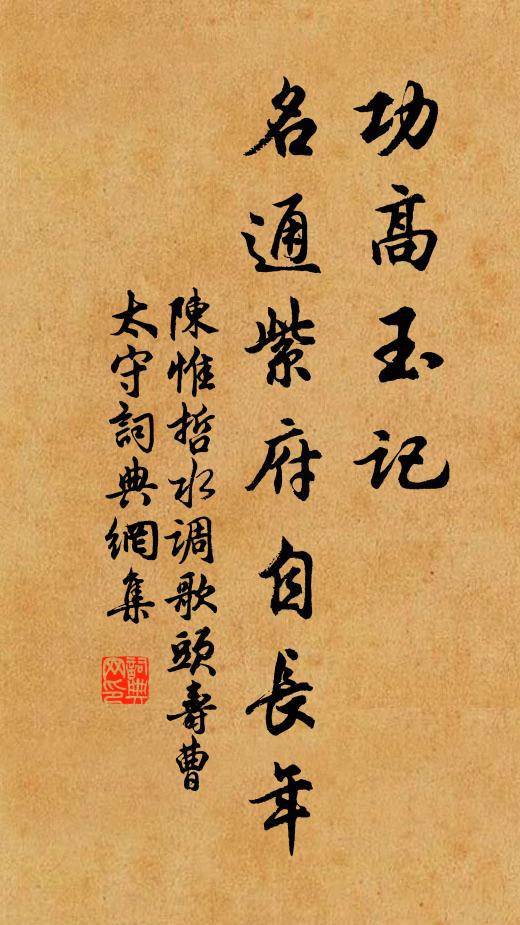 功高玉记
名通紫府自長年
陳惟哲水调歌頭壽曹
太守詞典網集
詞典网印